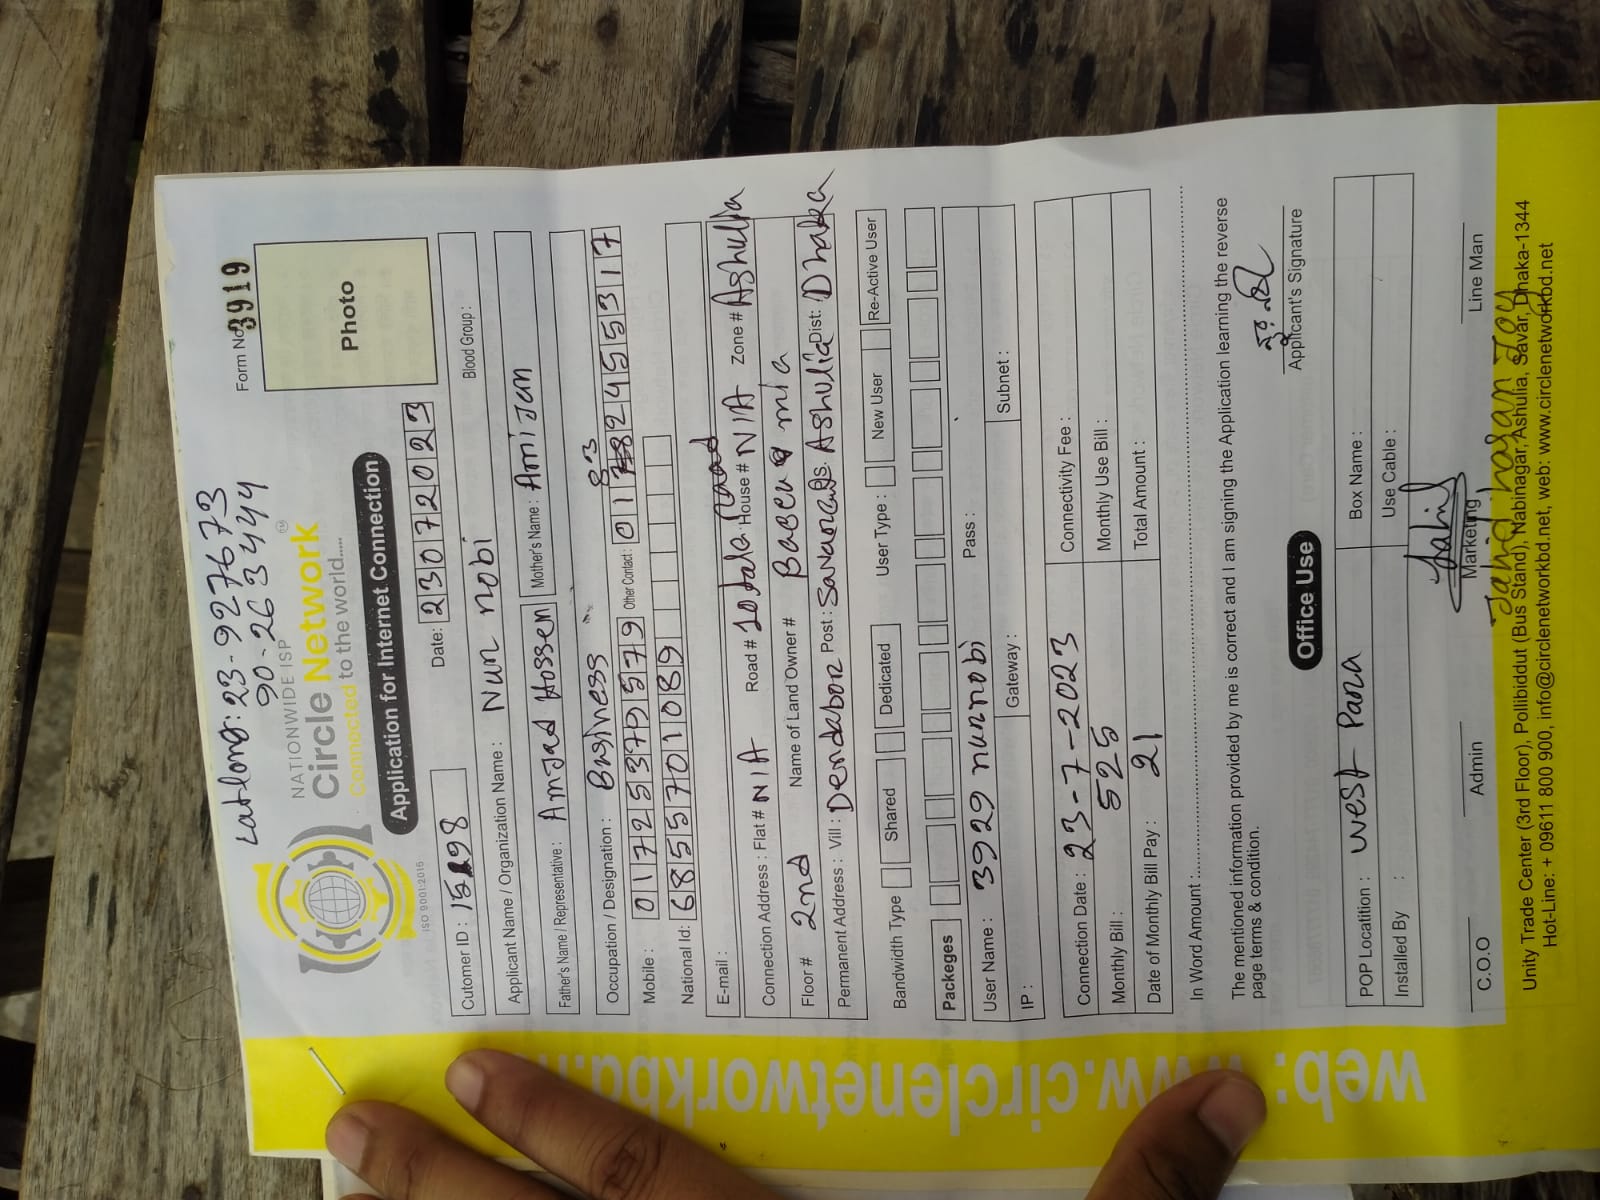 Latlong: 23-927673
90-263444
Form No. 3919
NATIONWIDE ISP
Circle Network™
Connected to the world.....
ISO 9001:2015
Photo
Application for Internet Connection
Date: 23072023
Cutomer ID : Blood Group :
Applicant Name / Organization Name : Nur nobi
Father's Name / Representative : Amjad Hossen Mother's Name : Amijan
Occupation / Designation : Business
Mobile : 01725379579 Other Contact :
National Id: 6855701089
E-mail :
Connection Address : Flat # N/A Road # 10 tala Road House # N/A Zone # Ashulia
Floor # 2nd Name of Land Owner # mia
Permanent Address : Vill : Dendabor Post : Dist: Dhaka
Bandwidth Type Shared Dedicated User Type : New User Re-Active User
Packeges
User Name : 3929 nurnobi Pass :
IP : Gateway : Subnet :
Connection Date : 23-7-2023 Connectivity Fee :
Monthly Bill : 525 Monthly Use Bill :
Date of Monthly Bill Pay : 21 Total Amount :
In Word Amount
The mentioned information provided by me is correct and I am signing the Application learning the reverse
page terms & condition.
Applicant's Signature
Office Use
POP Locatition : West Para Box Name :
Installed By : Use Cable :
C.O.O Admin Marketing Line Man
Jahid hasan Joy
Unity Trade Center (3rd Floor), Pollibiddut (Bus Stand), Nabinagar, Ashulia, Savar, Dhaka-1344
Hot-Line: + 09611 800 900, info@circlenetworkbd.net, web: www.circlenetworkbd.net
web: www.circlenetworkbd.n